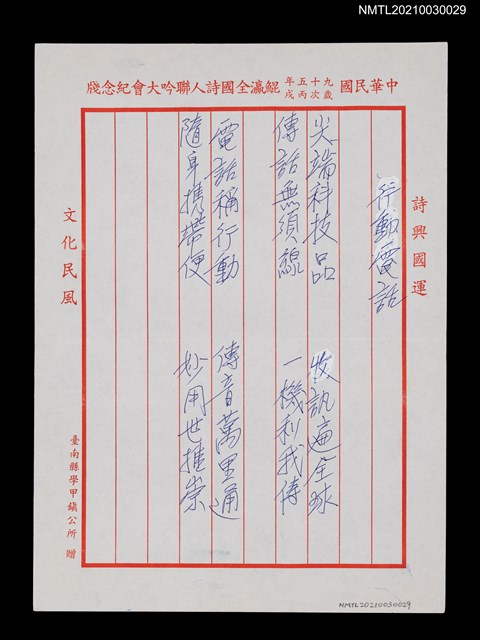 NMTL20210030029
中華民國九十五年歲次丙戌鯤瀛全國詩人聯吟大會紀念牋
詩興國運
行動電話
尖端科技品 收訊遍全球
傳話無須線 一機利我傳
電話稱行動 傳音萬里通
隨身携帶便 妙用世推崇
文化民風
臺南縣學甲鎮公所 贈
NMTL20210030029